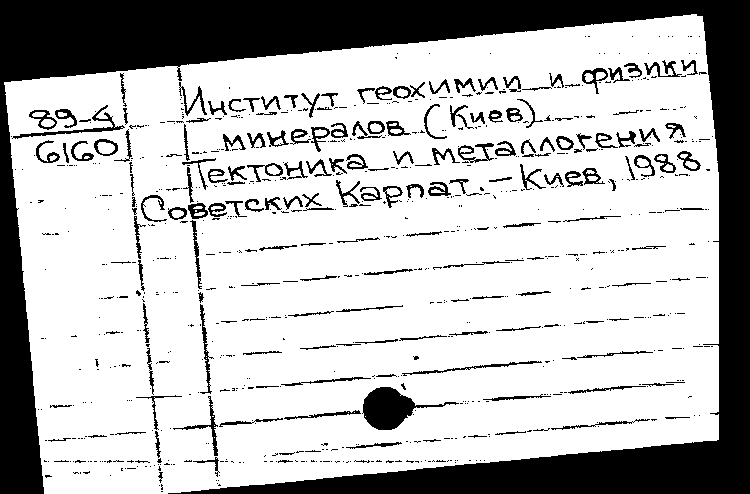 89-4
6160
Институт геохимии и физики
минералов (Киев).
Тектоника и металлогения
Советских Карпат. — Киев, 1988.